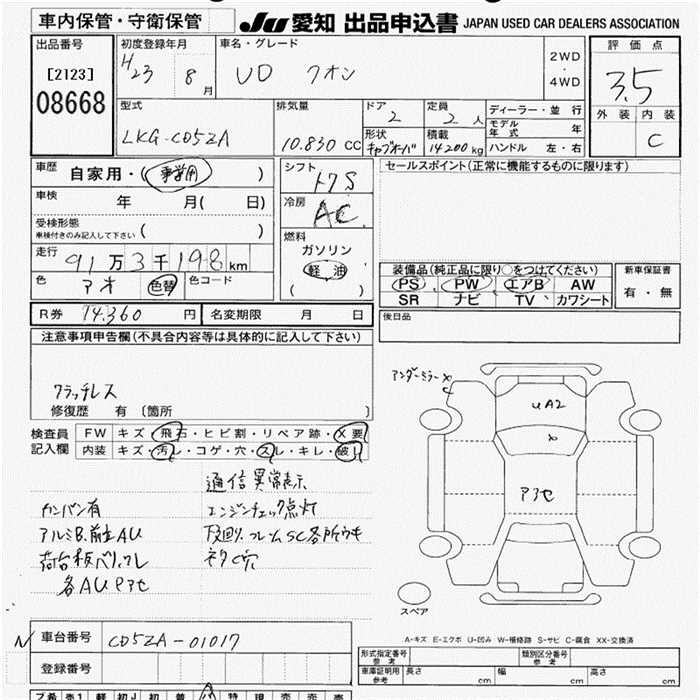 車内保管・守衛保管 JU 愛知 出品申込書 JAPAN USED CAR DEALERS ASSOCIATION
出品番号 初度登録年月 車名・グレード 2WD・4WD 評価点
[2123] H23 8月 UD クオン 3.5
08668 型式 排気量 ドア 定員 ディーラー・並行 外装 内装
2 2人 モデル年式 年
LKG-CD5ZA 10.830 CC 形状 キャブオーバ 積載 14200kg ハンドル 左・右 C
車歴 自家用・(事業用) シフト セールスポイント(正常に機能するものに限ります)
車検 年 月( 日) 冷房 AC
受検形態
車検付きのみ記入して下さい ( ) 燃料
ガソリン
走行 91万3千198km 軽油 装備品(純正品に限り○をつけてください) 新車保証書
色 アオ 色替 色コード ( ) PS PW エアB AW 有・無
SR ナビ TV カワシート
R券 14.360円 名変期限 月 日 後日品
注意事項申告欄(不具合内容等は具体的に記入して下さい)
アンダーミラーx
C
クラッチレス UA2
修復歴 有 〔箇所 〕
x
検査員 FW キズ・飛石・ヒビ割・リペア跡・X要
記入欄 内装 キズ・汚れ・コゲ・穴・スレ・キレ・破れ
通信異常表示
カンバン有 エンジンチェック点灯
アルミB.前左AU 下回り.フレームSC各所ウキ
荷台板ベリ.クレ ネクC穴
各AUアセ
アアセ
スペア
A-キズ E-エクボ U-凹み W-補修跡 S-サビ C-腐食 XX-交換済
N 車台番号 CD5ZA-01017
登録番号
形式指定番号 参考 類別区分番号 参考
車庫証明用 参考 長さ cm 幅 cm 高さ cm